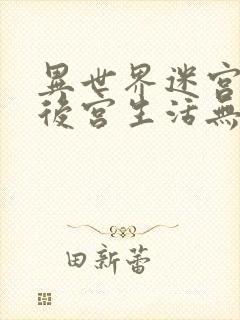 異世界迷宮
後宮生活無
田新蕾